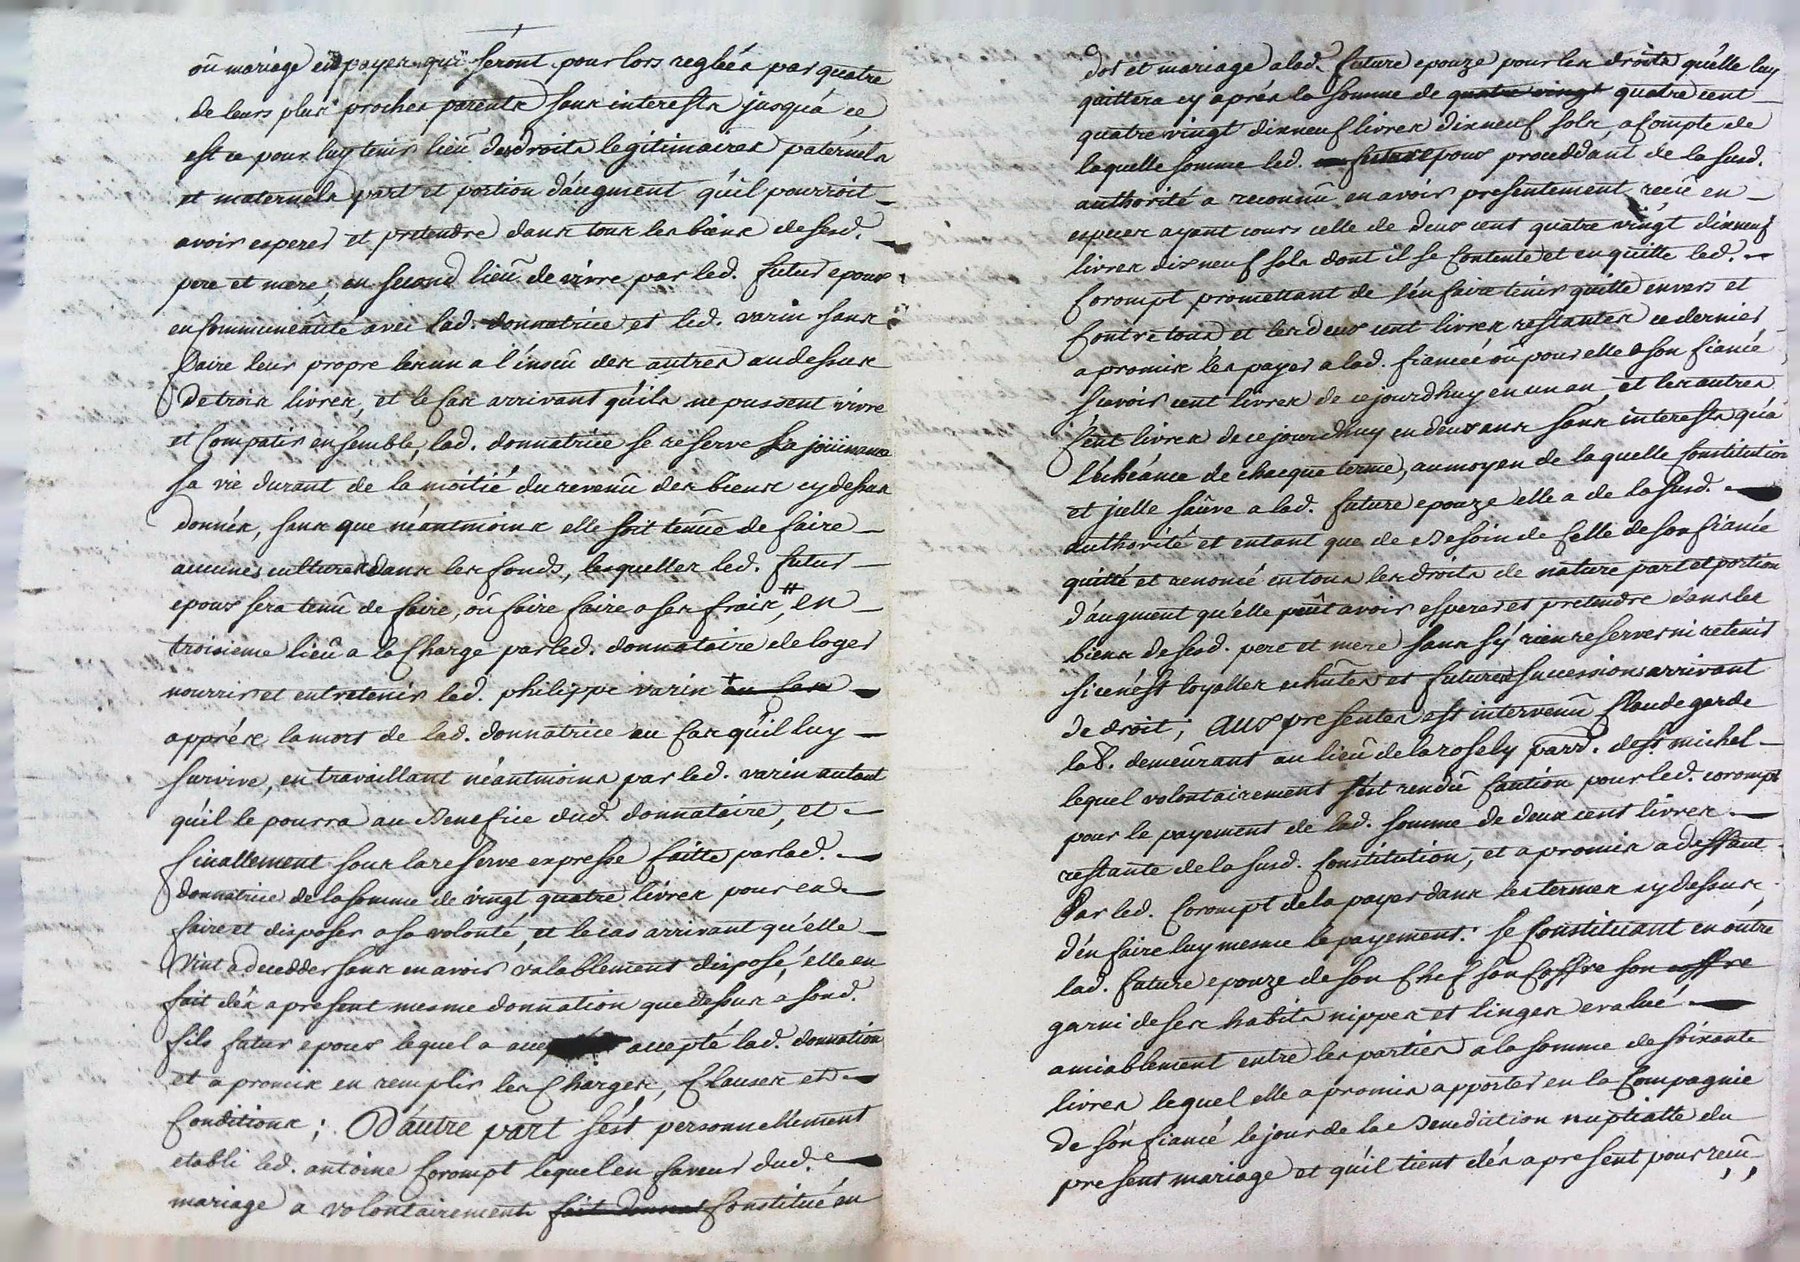 où mariage en payer qui séront pour lors regléés par quatre
de leurs plus proches parents sans interests jusqu'a ce
est ce pour luy tenir lieû des droits legitimaires paternels
et maternels part et portion d'augment qu'il pourroit
avoir esperer et pretendre dans tous les biens de sesd.
pere et mere, en second lieû de vivre par led. futur epoux
en communeaûté avec lad. donnatrice et led. varin sans
faire leur propre les uns a l'insçû des autres au dessus
de trois livres, et le cas arrivant qu'ils ne pussent vivre
et compatir ensemble, lad. donnatrice se réserve la joüissance
sa vie durant de la moitié du revenû des biens cy dessus
donnés, sans que néantmoins elle soit tenûe de faire
aucunes cultures dans les fonds, lesquelles led. futur
epoux sera tenû de faire, où faire faire a ses frais, # en
troisieme lieû a la charge par led. donnataire de loger
nourrir et entretenir led. philippe varin + au cas
apprés la mort de lad. donnatrice au cas qu'il luy
survive, en travaillant néantmoins par led. varin autant
qu'il le pourra au Benefice dud. donnataire, et
finallement sous la reserve expresse faitte par lad.
donnatrice de la somme de vingt quatre livres pour en
faire et disposer a sa volonté, et le cas arrivant qu'elle
vint a decedder sans en avoir valablement disposé, elle en
fait dés a present mesme donnation que dessus a sond.
fils futur epoux lequel a accepté lad. donnation
et a promis en remplir les charges, clauses et
conditions; D'autre part s'ést personnellement
etabli led. antoine corompt lequel en faveur dud.
mariage a volontairement fait donnat constitué en
dot et mariage a lad. future epouze pour les droits qu'elle luy
quittera cy aprés la somme de quatre vingt quatre cent
quatre vingt dixneuf livres dixneuf sols, a compte de
laquelle somme led. futur epoux proceddant de la susd.
authorité a reconnû en avoir presentement reçû en
especes ayant cours celle de deux cent quatre vingt dixneuf
livres dixneuf sols dont il se contente et en quitte led.
corompt promettant de l'en fara tenir quitte envers et
contre tous et les deux cent livres restantes ce dernier
a promis les payer a lad. fiancéé où pour elle a son fiancé
sçavoir cent livres de cejourdhuy en un an, et les autres
cent livres de cejourdhuy en deux ans sans interests qu'a
l'échéance de chacque terme, au moyen de laquelle constitution
et jcelle saûve a lad. future epouze elle a de la susd.
authorité et entant que de Besoin de celle de son fiancé
quitté et renoncé en tous les droits de nature part et portion
d'augment qu'elle peût avoir esperer et pretendre dans les
biens de sesd. pere et mere sans s'y rien reserver ni retenir
si ce n'ést loyalles echûtes et futures successions arrivant
de droit; Aux presentes est intervenû Claude garde
lab. demeûrant au lieû de la rosely parr. de st michel
lequel volontairement s'ést rendû caution pour led. corompt
pour le payement de lad. somme de deux cent livres
restante de la susd. constitution, et a promis a deffaut
Par led. Corompt de la payer dans les termes cy dessus,
d'en faire luy mesme le payement: se constituant en outre
lad. future epouze de son chef son coffre son coffre
garni de ses habits nippes et linges evalué
amiablement entre les parties a la somme de soixante
livres lequel elle a promis apporter en la compagnie
de són fiancé le jour de la Benediction nuptialle du
present mariage et qu'il tient dés a present pour reçû,,